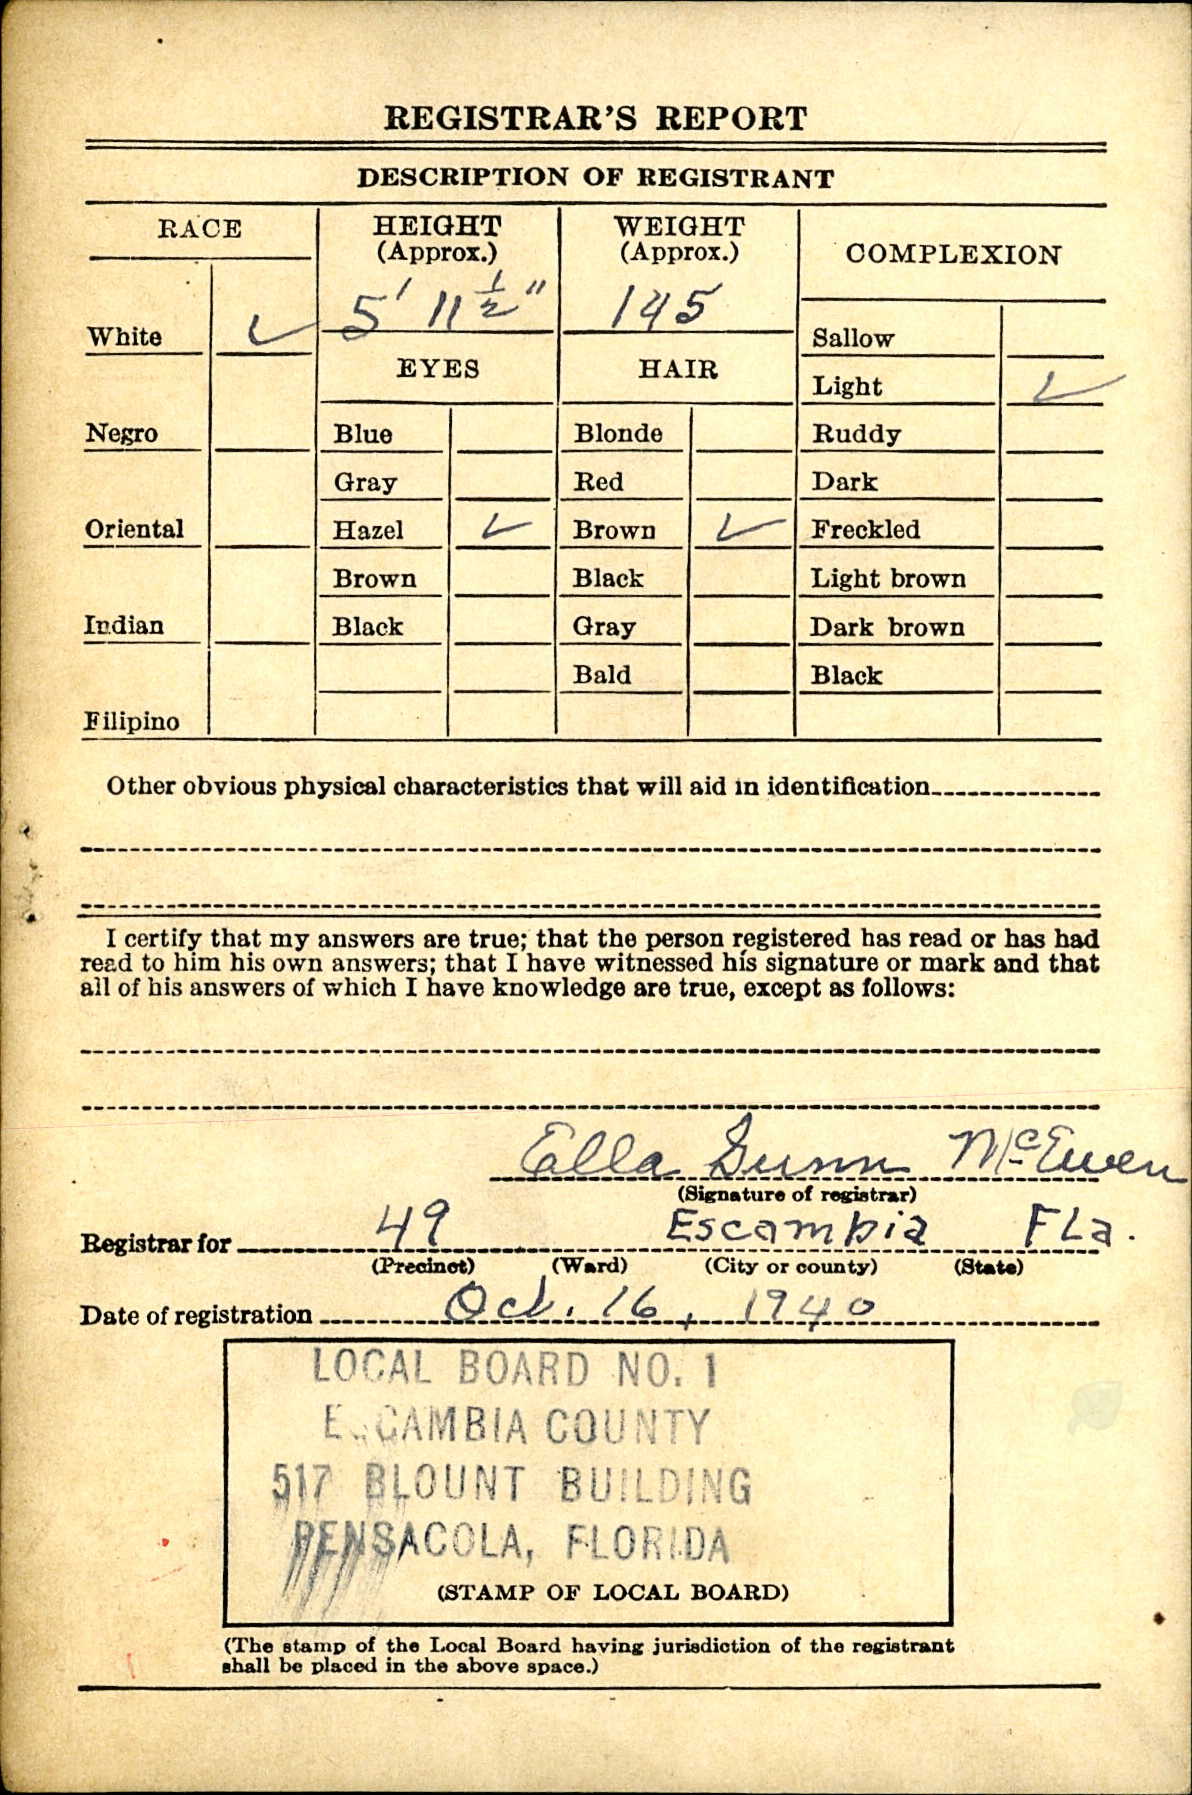 REGISTRAR'S REPORT
DESCRIPTION OF REGISTRANT
RACE
HEIGHT
(Approx.)
WEIGHT
(Approx.)
COMPLEXION
5' 11 1/2"
145
White ✓
EYES
HAIR
Sallow
Light ✓
Negro
Blue
Blonde
Ruddy
Gray
Red
Dark
Oriental
Hazel ✓
Brown ✓
Freckled
Brown
Black
Light brown
Indian
Black
Gray
Dark brown
Bald
Black
Filipino
Other obvious physical characteristics that will aid in identification
I certify that my answers are true; that the person registered has read or has had
read to him his own answers; that I have witnessed his signature or mark and that
all of his answers of which I have knowledge are true, except as follows:
Ella Gunn McEwen
(Signature of registrar)
Registrar for 49 Escambia Fla.
(Precinct) (Ward) (City or county) (State)
Date of registration Oct. 16, 1940
LOCAL BOARD NO. 1
ESCAMBIA COUNTY
517 BLOUNT BUILDING
PENSACOLA, FLORIDA
(STAMP OF LOCAL BOARD)
(The stamp of the Local Board having jurisdiction of the registrant
shall be placed in the above space.)